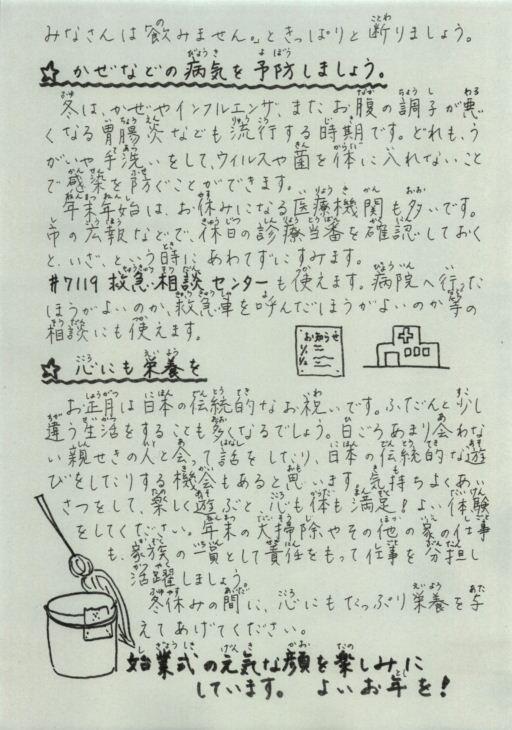 みなさんは「飲みません。」ときっぱりと断りましょう。
☆ かぜなどの病気を予防しましょう。
冬は、かぜやインフルエンザ、またお腹の調子が悪
くなる胃腸炎なども流行する時期です。どれも、う
がいや手洗いをして、ウイルスや菌を体に入れないこと
で感染を防ぐことができます。
年末年始は、お休みになる医療機関も多いです。
市の広報などで、休日の診療当番を確認しておく
と、いざ、という時にあわてずにすみます。
#7119 救急相談センターも使えます。病院へ行った
ほうがよいのか、救急車を呼んだほうがよいのか等の
相談にも使えます。
お知らせ
☆ 心にも栄養を
お正月は日本の伝統的なお祝いです。ふだんと少し
違う生活をすることも多くなるでしょう。日ごろあまり会わな
い親せきの人と会って話をしたり、日本の伝統的な遊
びをしたりする機会もあると思います。気持ちよくあい
さつをして、楽しく遊ぶと、心も体も満足!よい体験
をしてください。年末の大掃除やその他の家の仕事
も、家族の一員として責任をもって仕事を分担し
活躍しましょう。
冬休みの間に、心にもたっぷり栄養を与
えてあげてください。
始業式の元気な顔を楽しみに
しています。 よいお年を!